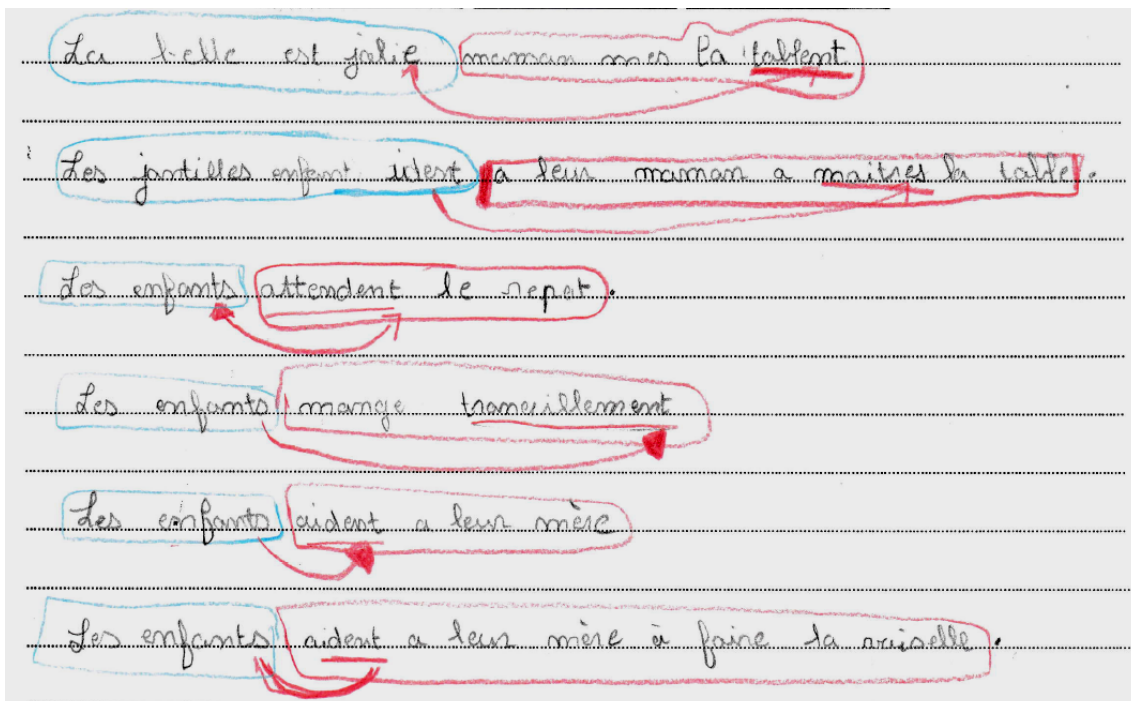 La belle est jolie maman mes la tablent
Les jantilles enfant ident a leur maman a maitres la table.
Les enfants attendent le repat.
Les enfants mange tranqillement
Les enfants aident a leur mère
Les enfants aident a leur mère à faire la vaiselle.